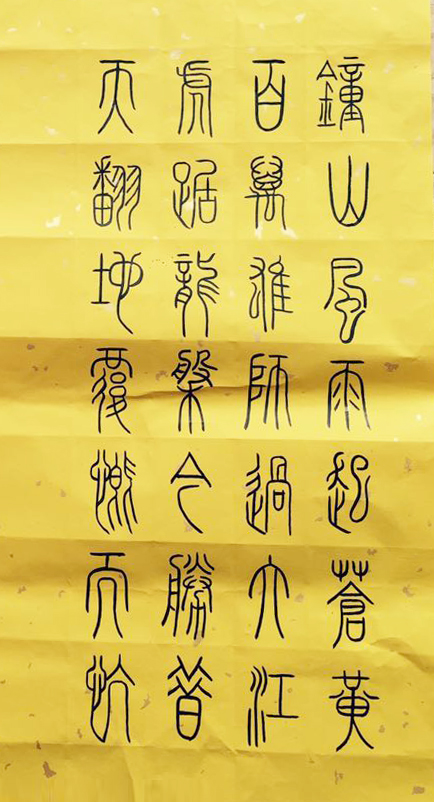 鐘山風雨起蒼黃
百萬雄師過大江
虎踞龍槃今勝昔
天翻地覆慨而忼